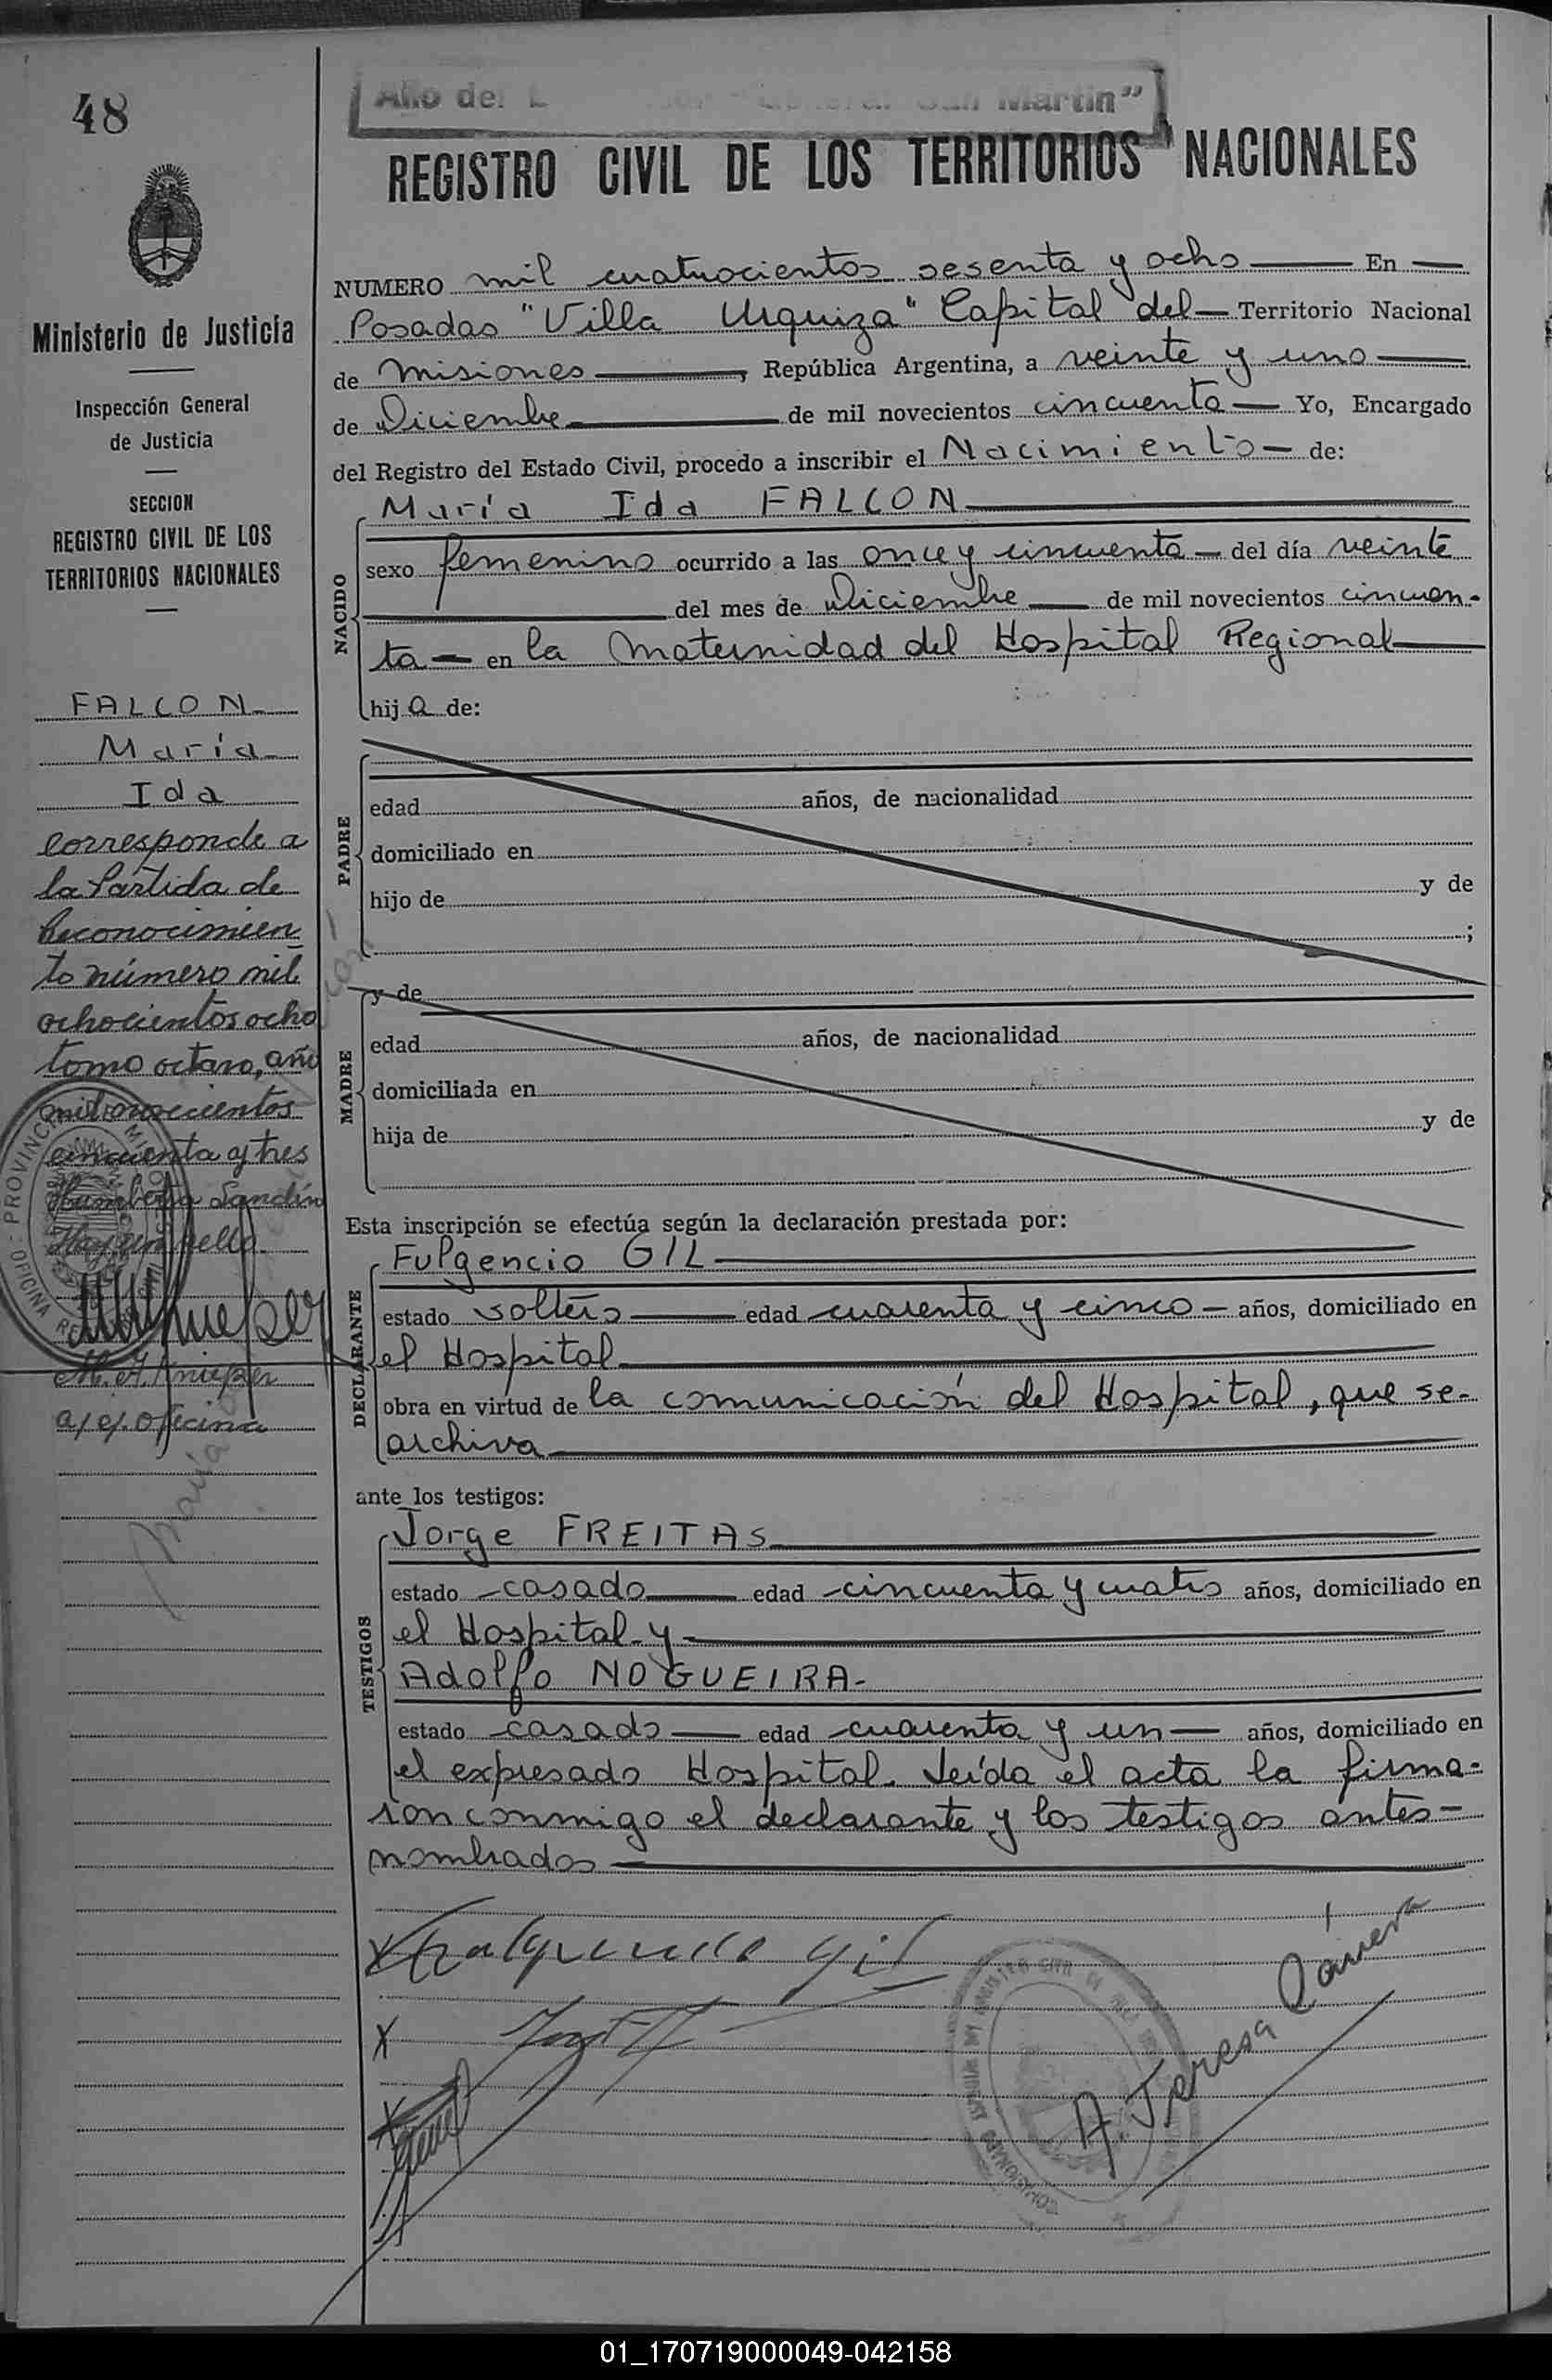 48
Año del L "General San Martin"
REGISTRO CIVIL DE LOS TERRITORIOS NACIONALES
Ministerio de Justicia
Inspección General
de Justicia
SECCION
REGISTRO CIVIL DE LOS
TERRITORIOS NACIONALES
FALCON
María
Ida
Corresponde a
la Partida de
Reconocimien
to número mil
ochocientos ocho
tomo octavo, año
mil novecientos
cincuenta y tres
Humberto
M. A. Knieper
a/c. oficina
NUMERO mil cuatrocientos sesenta y ocho En
Posadas "Villa Urquiza" Capital del Territorio Nacional
de Misiones, República Argentina, a veinte y uno
de Diciembre de mil novecientos cincuenta Yo, Encargado
del Registro del Estado Civil, procedo a inscribir el Nacimiento de:
NACIDO
María Ida FALCON
sexo femenino ocurrido a las once y cincuenta del día veinte
del mes de Diciembre de mil novecientos cincuen-
ta en la Maternidad del Hospital Regional
hija de:
PADRE
edad años, de nacionalidad
domiciliado en
hijo de y de
;
MADRE
y de
edad años, de nacionalidad
domiciliada en
hija de y de
Esta inscripción se efectúa según la declaración prestada por:
DECLARANTE
Fulgencio GIL
estado soltero edad cuarenta y cinco años, domiciliado en
el Hospital
obra en virtud de la comunicación del Hospital, que se-
archiva
ante los testigos:
TESTIGOS
Jorge FREITAS
estado casado edad cincuenta y cuatro años, domiciliado en
el Hospital y
Adolfo NOGUEIRA.
estado casado edad cuarenta y un años, domiciliado en
el expresado Hospital. Leída el acta la firma-
ron conmigo el declarante y los testigos antes-
nombrados
X Gil
X
X
A. Teresa
01_170719000049-042158